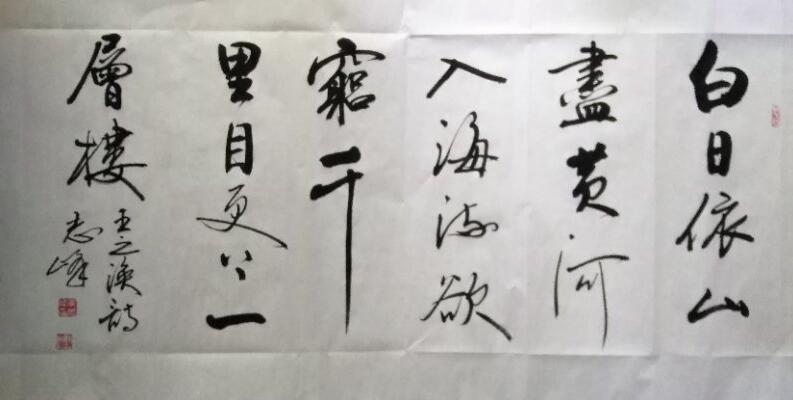 白日依山
盡黄河
入海流欲
窮千
里目更上一
層樓
王之渙詩
志峰